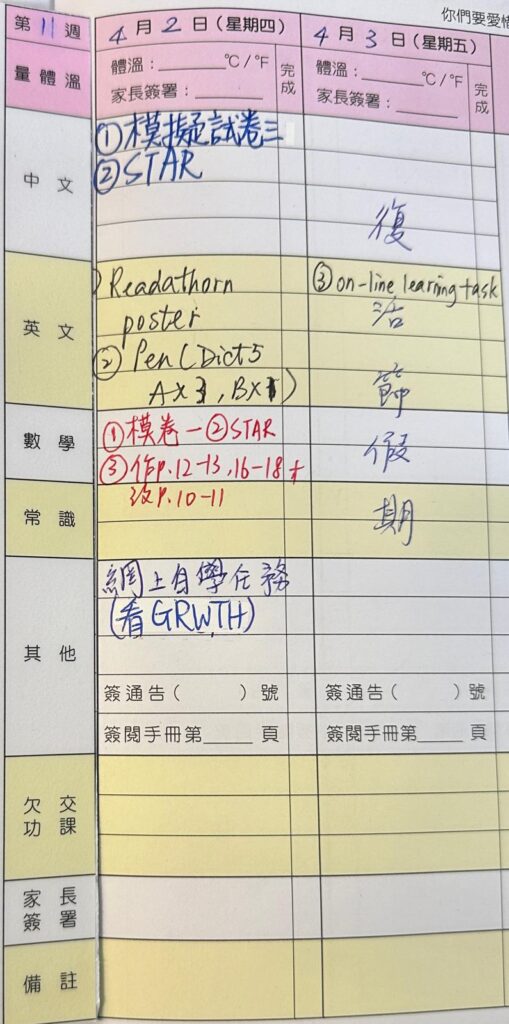 你們要愛惜
第 11 週
4 月 2 日 (星期四)
4 月 3 日 (星期五)
量體溫
體溫：______ °C / °F
家長簽署：______
完成
體溫：______ °C / °F
家長簽署：______
完成
中文
①模擬試卷三
②STAR
英文
Readathorn
poster
② Pen (Dict 5
A×3, B×1)
③ on-line learning task
數學
①模卷一②STAR
③作p.12-13,16-18+
改p.10-11
常識
復
活
節
假
期
其他
網上自學任務
(看GRWTH)
簽通告( ) 號
簽通告( ) 號
簽閱手冊第____頁
簽閱手冊第____頁
欠交
功課
家長
簽署
備註